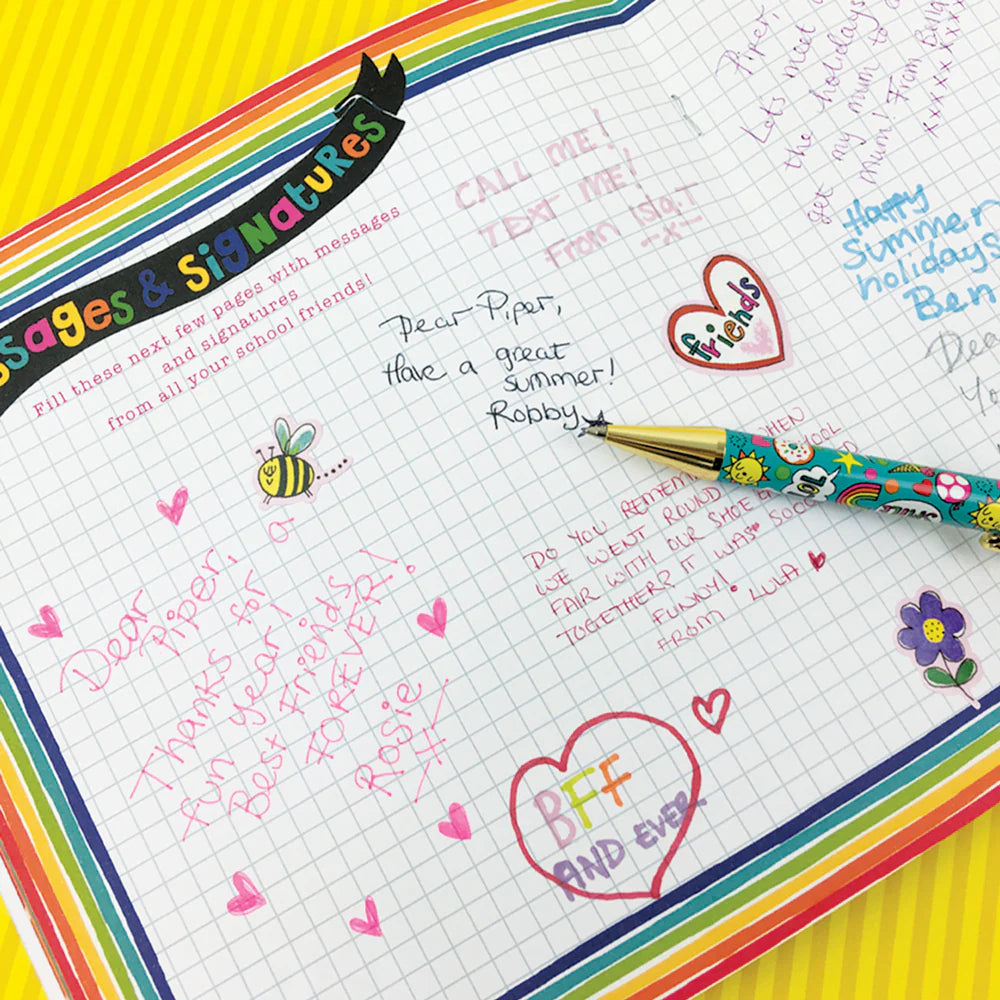 ssages & Signatures
Fill these next few pages with messages
and signatures
from all your school friends!
CALL ME!
TEXT ME!
From Isla.T
-x-
Dear Piper,
Have a great
summer!
Robby
friends
Piper,
Lets meet
the holidays
get my mum to
mum! From Bella
xxxxx xxxxx
Happy
Summer
holidays
Ben
Dea
Yo
HEN
DO YOU REMEM
WE WENT ROUND
FAIR WITH OUR SHOE
TOGETHER? IT WAS SOOO
FUNNY!
FROM LULA
LOL
SMILE
Dear
Piper,
Thanks for
fun year!
Best Friends
FOREVER!
Rosie
-x-
BFF
AND EVER